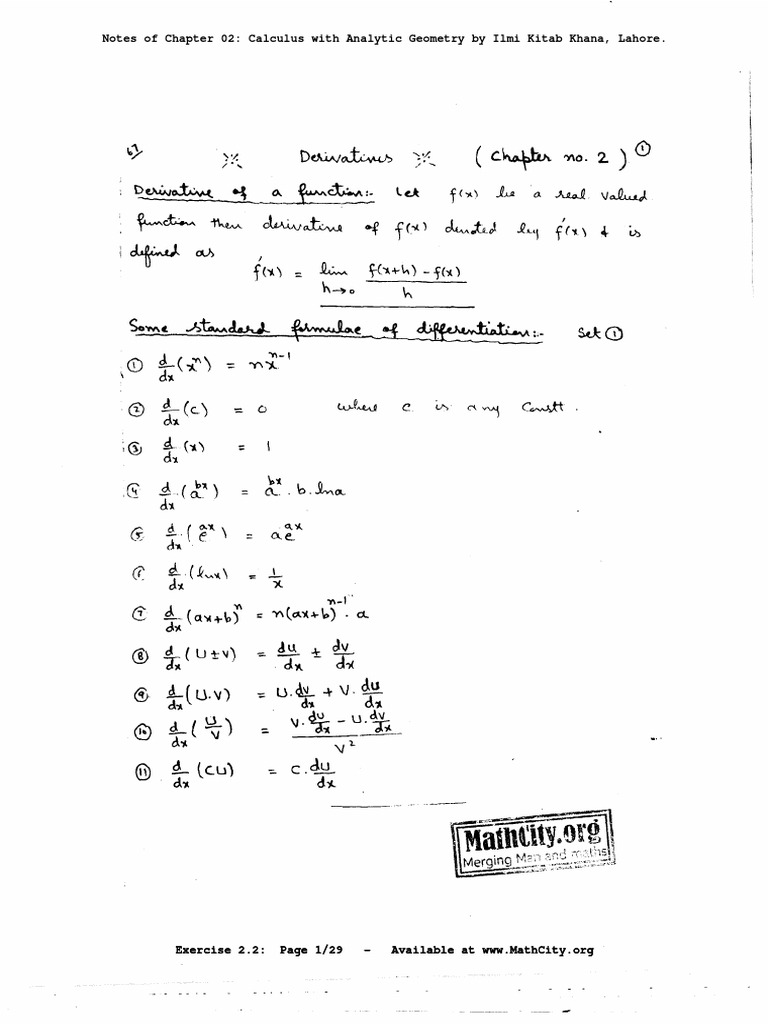 Notes of Chapter 02: Calculus with Analytic Geometry by Ilmi Kitab Khana, Lahore.
Derivatives (Chapter no. 2) ①
Derivative of a function:- Let f(x) be a real valued
function then derivative of f(x) denoted by f'(x) & is
defined as
f'(x) = lim h→0 f(x+h) - f(x) / h
Some standard formulae of differentiation:- Set ①
① d/dx (xⁿ) = nxⁿ⁻¹
② d/dx (c) = 0 where c is any Constt.
③ d/dx (x) = 1
④ d/dx (a^bx) = a^bx . b. lna
⑤ d/dx (e^ax) = ae^ax
⑥ d/dx (lnx) = 1/x
⑦ d/dx (ax+b)ⁿ = n(ax+b)ⁿ⁻¹ . a
⑧ d/dx (U ± V) = du/dx ± dv/dx
⑨ d/dx (U.V) = U. dv/dx + V. du/dx
⑩ d/dx (U/V) = V. du/dx - U. dv/dx / V²
⑪ d/dx (CU) = C. du/dx
MathCity.org
Merging Man and maths
Exercise 2.2: Page 1/29 – Available at www.MathCity.org